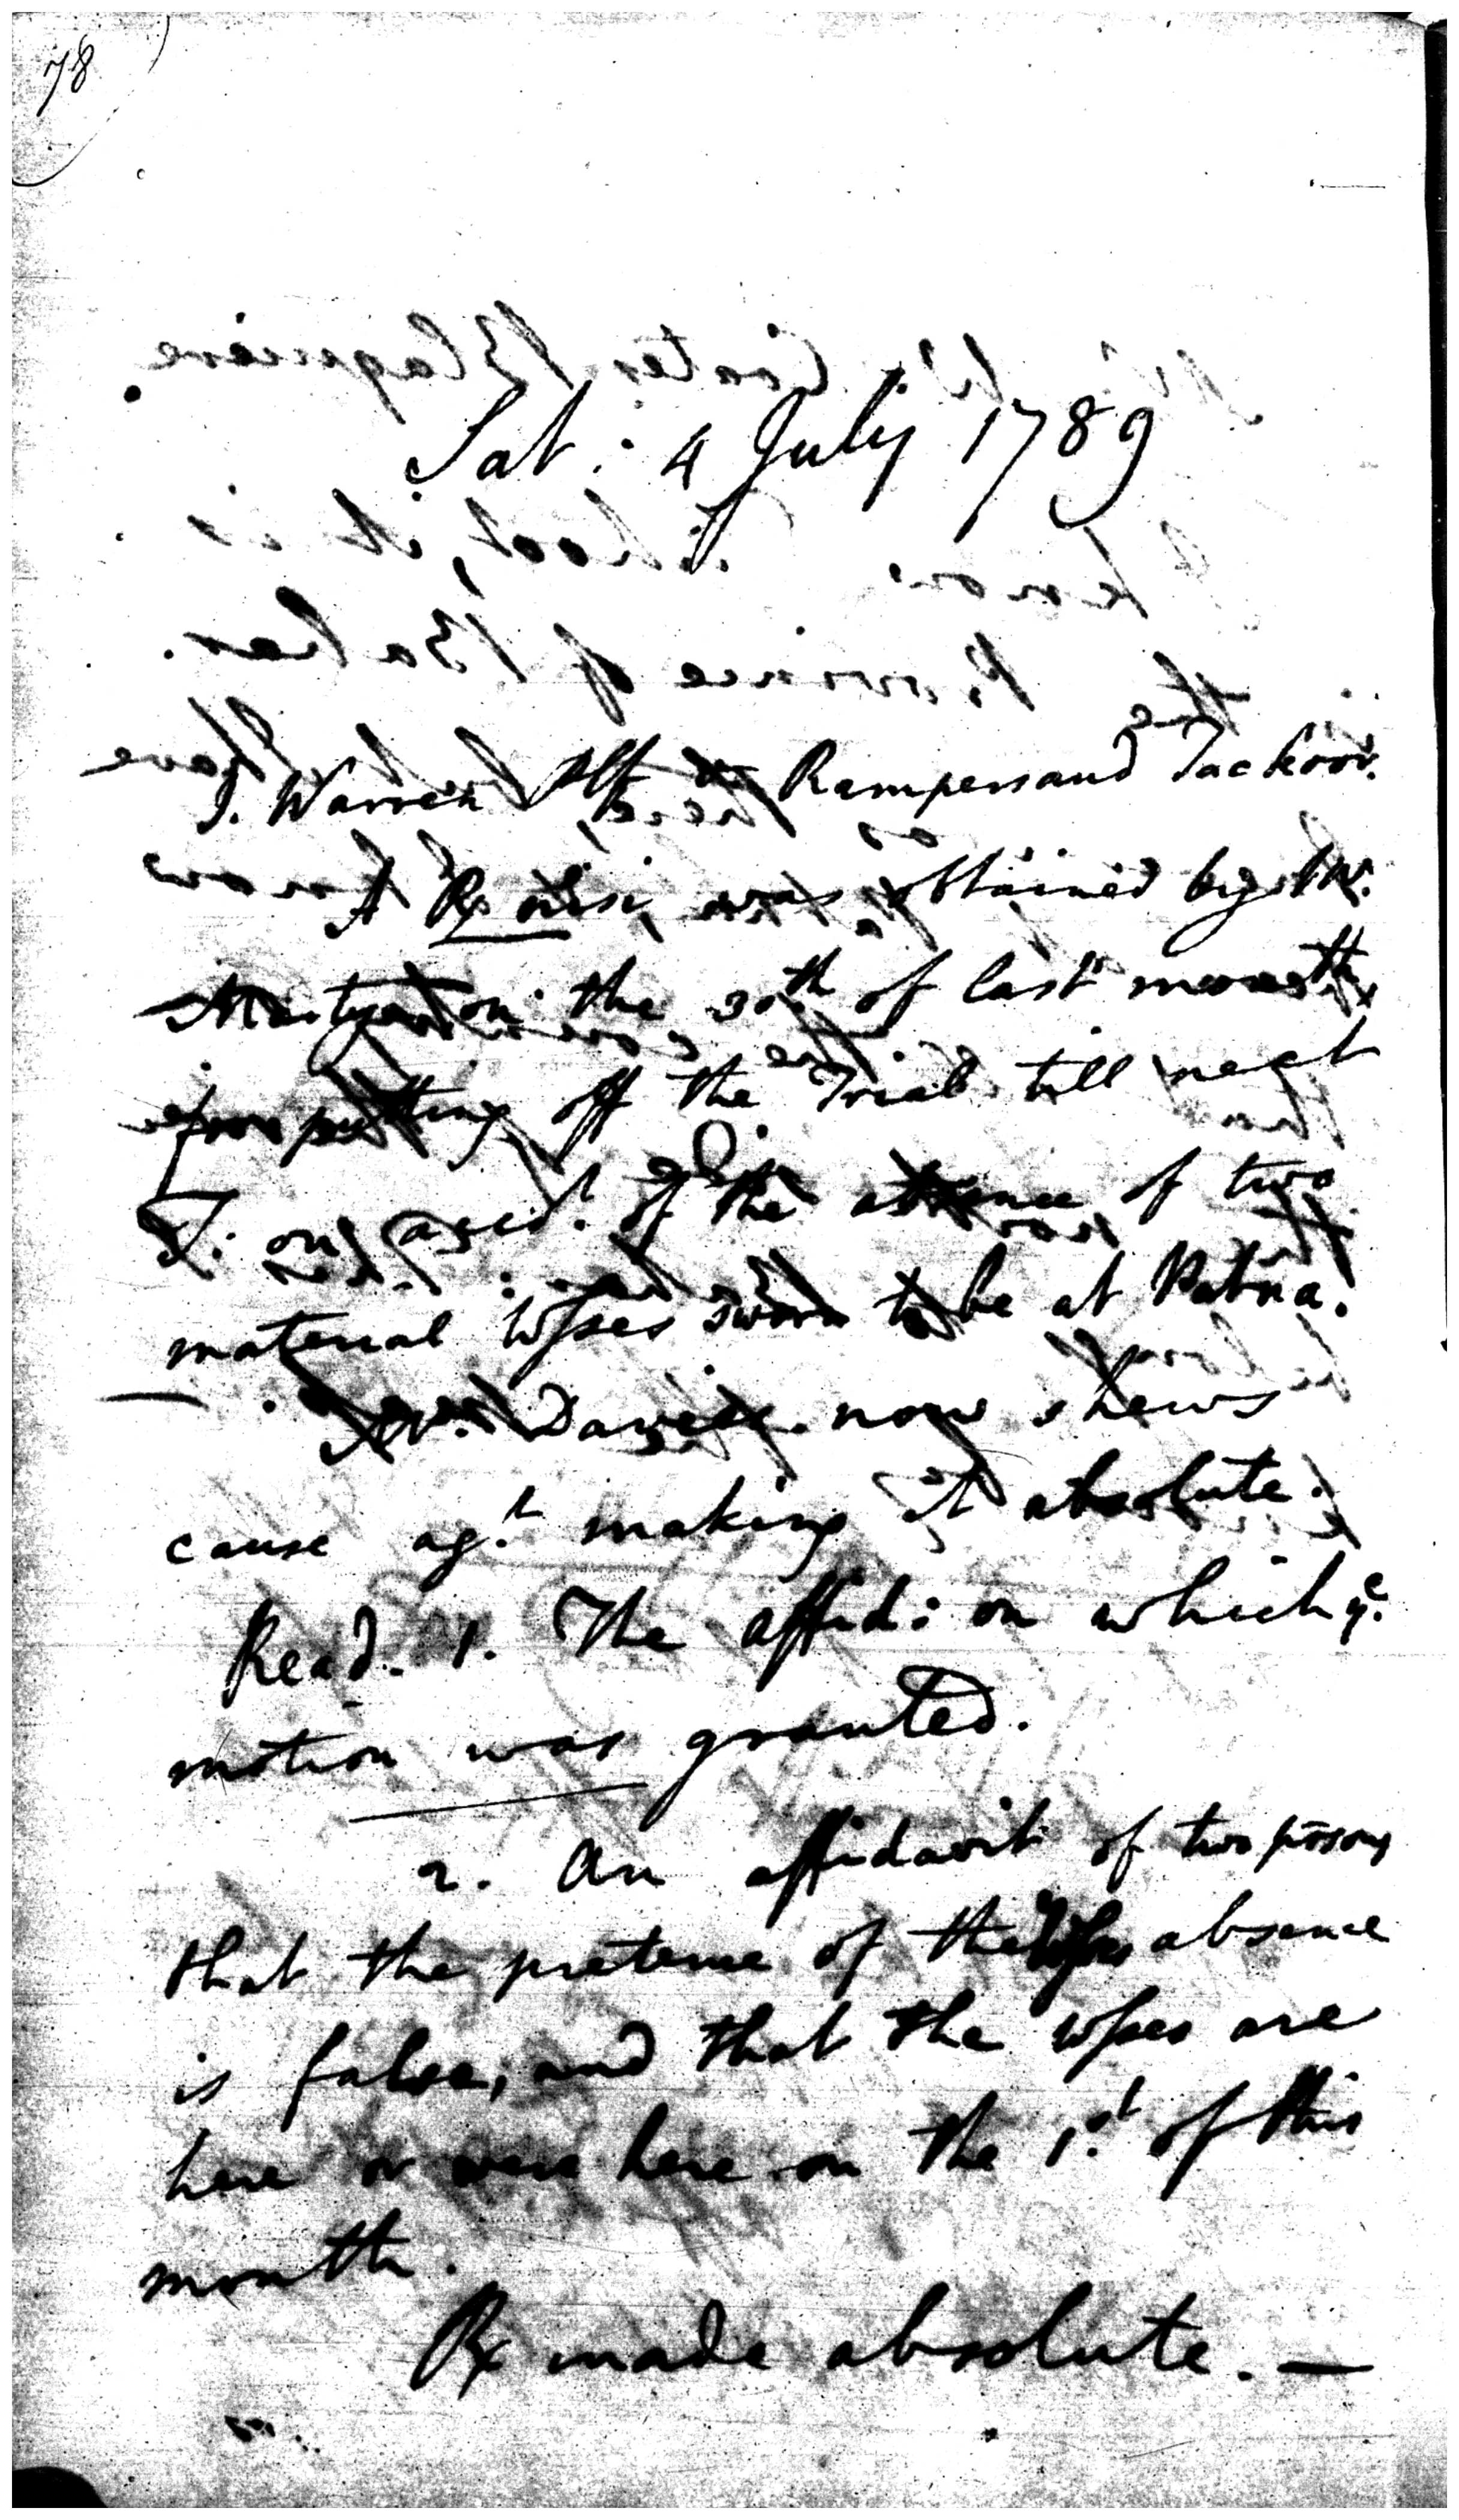 78
Sat: 4 July 1789
J. Warren Rampersaud Tackoor.
A Rx nisi, was obtained by Mr.
on the 30th of last month
for putting off the Trial till next
T: on acct. of the absence of two
material wsses sworn to be at Patna.
Mr. Davies now shews
cause agt. making it absolute.
Read. 1. The affid: on which ye.
motion was granted.
2. An affidavit of two psons
that the pretence of the absence
is false, and that the wsses are
here or were here on the 1st. of this
month.
Rx made absolute. —